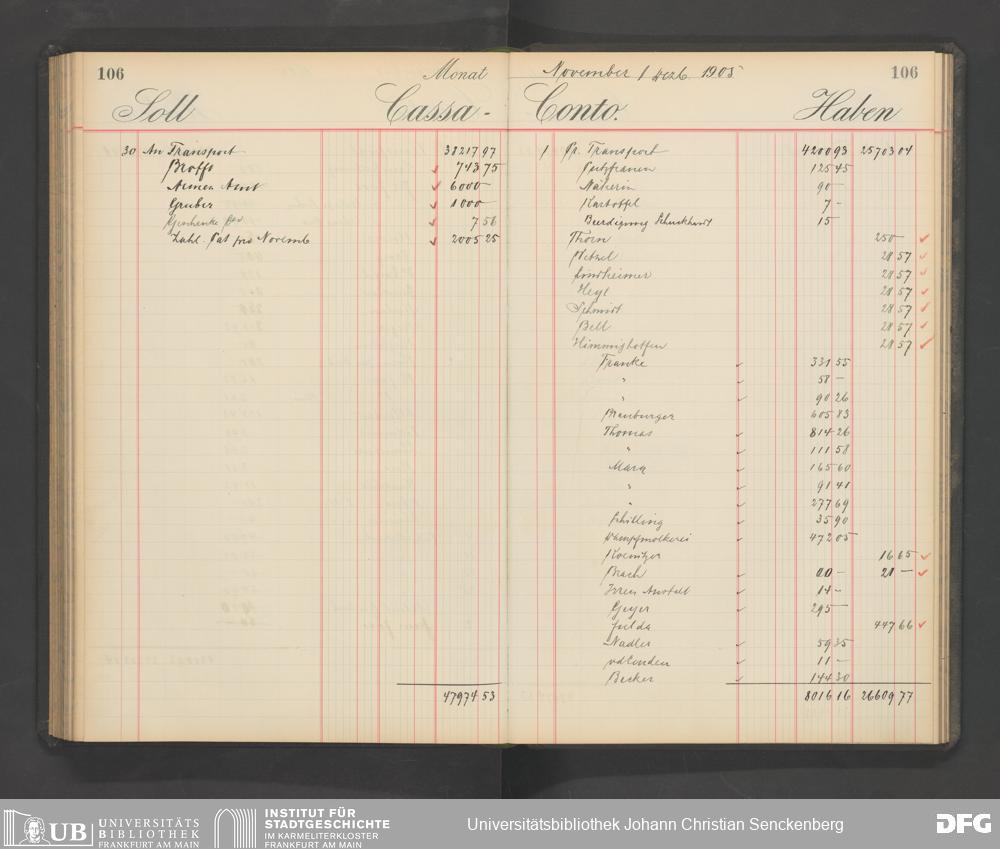 106 Monat November / Dezb. 1905 106
Soll Cassa- Conto. Haben
30 An Transport 38217 97
743 75
Armen Amt 6000 —
Gruber 1000 —
Geschenke 7 56
Zahl. Pat pro Novemb 2005 25
47974 53
1 Pr. Transport 4200 93 25703 04
Putzfrauen 125 45
Näherin 90 —
Kartoffel 7 —
Beerdigung 15
Thorn 250 —
Wetzel 28 57
28 57
Heyl 28 57
Schmidt 28 57
Bell 28 57
Himmighoffen 28 57
Francke 331 55
" 58 —
" 90 26
605 83
Thomas 814 26
" 111 58
Marx 165 60
" 91 41
" 277 69
Schilling 35 90
Dampfmolkerei 472 05
16 65
Brach 21 —
Irren Anstalt 14 —
Geyer 295 —
Fulda 447 66
Nadler 59 35
vdEmden 11 —
Becker 144 30
8016 16 26609 77
UB UNIVERSITÄTS
BIBLIOTHEK
FRANKFURT AM MAIN
INSTITUT FÜR
STADTGESCHICHTE
IM KARMELITERKLOSTER
FRANKFURT AM MAIN
Universitätsbibliothek Johann Christian Senckenberg
DFG